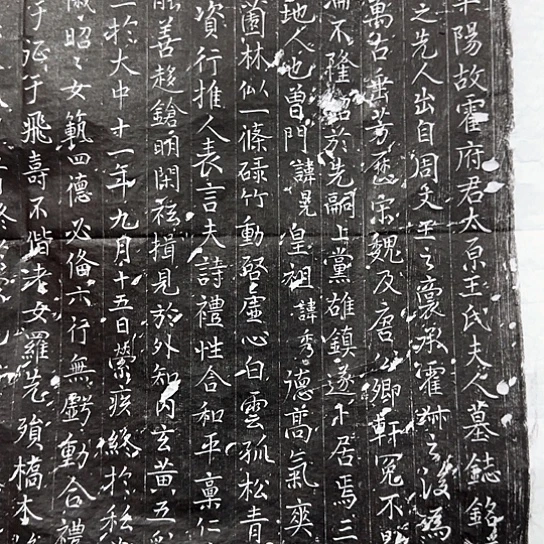 陽故霍府君太原王氏夫人墓誌銘
之先人出自周文王之裔承霍叔之後爲
萬古垂芳歷宋魏及唐公卿軒冕不
不墜紹於先嗣上黨雄鎮遂卜居焉三
地人也曾門諱晃皇祖諱秀德高氣爽
園林似一篠碌竹動堅虛心白雲孤松青
資行推人表言夫詩禮性合和平稟仁
善趍鎗明閑祗揖見於外知內玄黃五彩
於大中十一年九月十五日縈疾終於私
昭昭女範四德必備六行無虧動合禮
于征于飛壽不偕老女羅先殞槁木